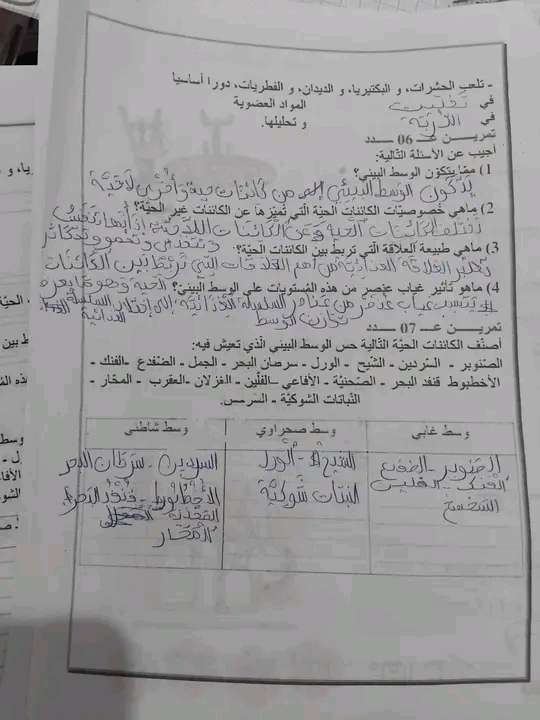 - تلعب الحشرات، و البكتيريا، و الديدان، و الفطريات، دورا أساسيا
في تفتيت المواد العضوية
في التربة و تحليلها.
تمريـــن عــ06 ــدد
أجيب عن الأسئلة التالية:
1) ممّا يتكوّن الوسط البيئي؟
يتكون الوسط البيئي من كائنات حية وأخرى لاحيّة
2) ماهي خصوصيّات الكائنات الحيّة التي تميّزها عن الكائنات غير الحيّة؟
تختلف الكائنات الحية عن الكائنات اللاحية إذ أنها تتنفس
وتتغذى وتنمو وتتكاثر
3) ماهي طبيعة العلاقة الّتي تربط بين الكائنات الحيّة؟
تعتبر العلاقة الغذائية من أهم العلاقات التي تربط بين الكائنات
الحية
4) ماهو تأثير غياب عنصر من هذه المستويات على الوسط البيئي؟
يتسبب غياب عنصر من عناصر السلسلة الغذائية إلى إختلال السلسلة
الغذائية
توازن الوسط
تمريـــن عــ07 ــدد
أصنّف الكائنات الحيّة التّالية حس الوسط البيئي الّذي تعيش فيه:
الصنوبر - السّردين - الشّيح - الورل - سرطان البحر - الجمل - الضّفدع - الفنك -
الأخطبوط قنفد البحر - الصّحنيّة - الأفاعي - الفلّين - الغزلان - العقرب - المحّار -
النّباتات الشّوكيّة - السّرخس.
وسط غابي
وسط صحراوي
وسط شاطئي
الصنوبر - الضفدع
الفنك - الفلين
الشيح - الورل
النبتات شوكيّة
السردين - سرطان البحر
الأخطبوط - قنفد البحر
المحّار